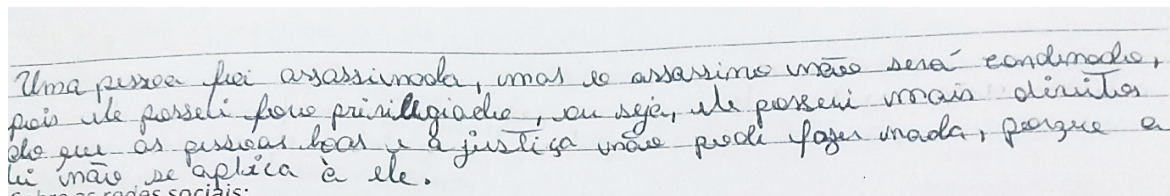 Uma pessoa foi assassinada, mas o assassino não será condenado,
pois ele possui foro privilegiado, ou seja, ele possui mais direitos
do que as pessoas boas e a justiça não pode fazer nada, porque a
lei não se aplica à ele.
sociais: